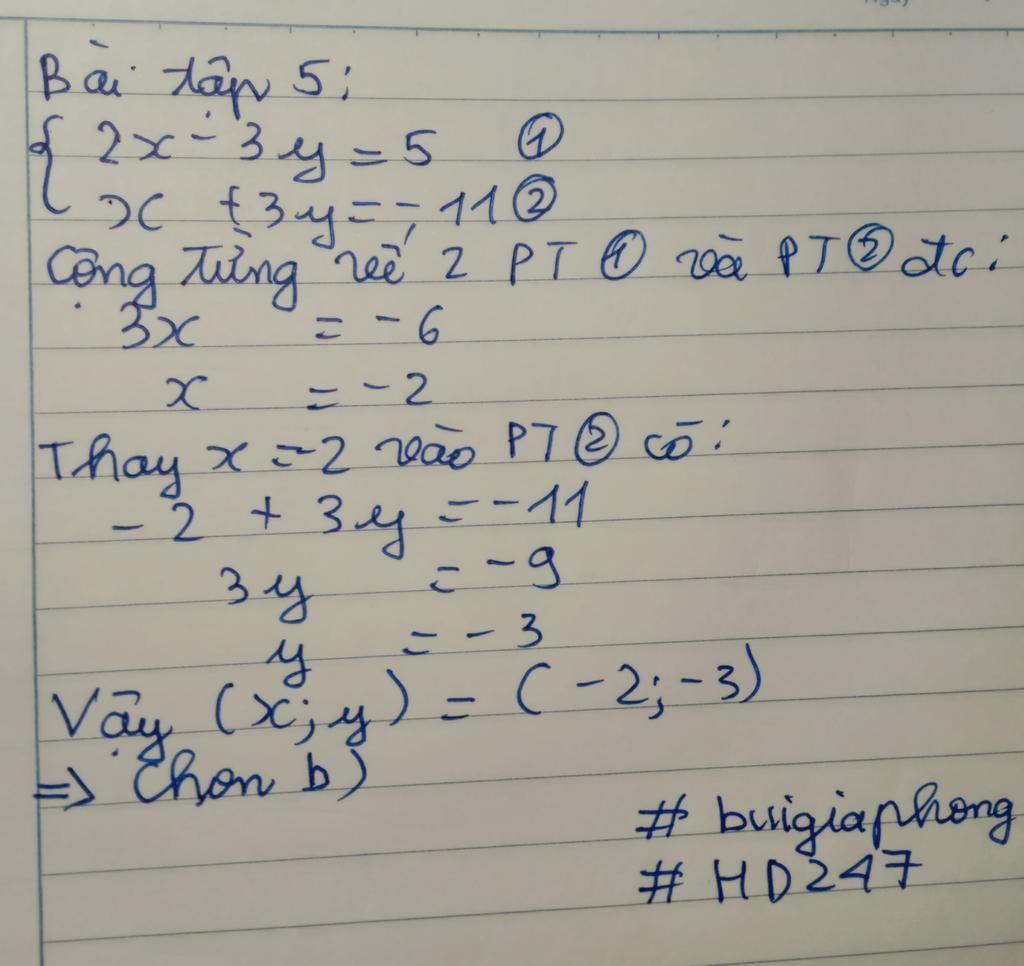 Bài tập 5:
{ 2x - 3y = 5 ①
x + 3y = - 11 ②
Cộng từng vế 2 PT ① và PT ② đc:
3x = - 6
x = - 2
Thay x = -2 vào PT ② có:
- 2 + 3y = - 11
3y = - 9
y = - 3
Vậy (x; y) = (- 2; - 3)
=> Chọn b)
# buigiaphong
# HD247